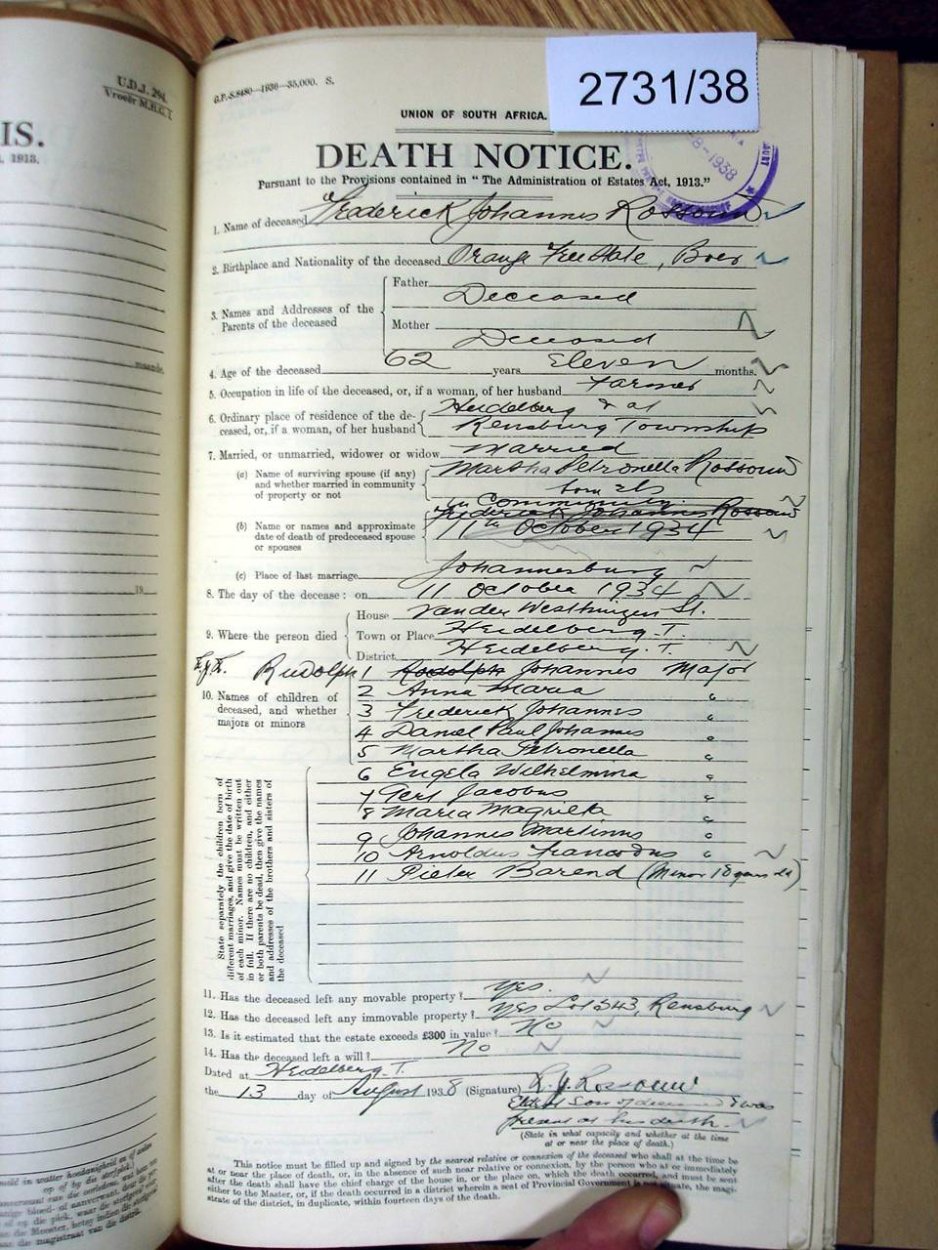 U.D.J. 294.
Vroeër M.H.G. 1
IS.
, 1913.
maande.
19
G.P.-S.8480—1936—35,000. S.
2731/38
UNION OF SOUTH AFRICA.
8-1938
DEATH NOTICE.
Pursuant to the Provisions contained in "The Administration of Estates Act, 1913."
1. Name of deceased Frederick Johannes Rossouw
2. Birthplace and Nationality of the deceased Orange Free State, Boer
3. Names and Addresses of the Parents of the deceased
Father Deceased
Mother Deceased
4. Age of the deceased 62 years Eleven months.
5. Occupation in life of the deceased, or, if a woman, of her husband Farmer
6. Ordinary place of residence of the deceased, or, if a woman, of her husband
Heidelberg & at
Rensburg Township
7. Married, or unmarried, widower or widow Married
(a) Name of surviving spouse (if any) and whether married in community of property or not
Martha Petronella Rossouw
born Els
in Community.
(b) Name or names and approximate date of death of predeceased spouse or spouses
Frederick Johannes Rossouw
11th October 1934
(c) Place of last marriage Johannesburg
8. The day of the decease : on 11 October 1934
9. Where the person died
House Van der Westhuizen St.
Town or Place Heidelberg. T.
District Heidelberg. T.
Rudolph 1 Rodolph Johannes Major
10. Names of children of deceased, and whether majors or minors
2 Anna Maria "
3 Frederick Johannes "
4 Daniel Paul Johannes "
5 Martha Petronella "
6 Engela Wilhelmina "
7 Gert Jacobus "
8 Maria Magrieta "
9 Johannes Martinus "
10 Arnoldus Francodus "
11 Pieter Barend (Minor 18 years old)
State separately the children born of different marriages, and give the date of birth of each minor. Names must be written out in full. If there are no children, and either or both parents be dead, then give the names and addresses of the brothers and sisters of the deceased
11. Has the deceased left any movable property? Yes.
12. Has the deceased left any immovable property? Yes Lot 543, Rensburg
13. Is it estimated that the estate exceeds £300 in value? No
14. Has the deceased left a will? No
Dated at Heidelberg. T.
the 13 day of August 1938 (Signature) R. J. Rossouw
Eldest Son of deceased & was
present at his death.
(State in what capacity and whether at the time at or near the place of death.)
This notice must be filled up and signed by the nearest relative or connexion of the deceased who shall at the time be
at or near the place of death, or, in the absence of such near relative or connexion, by the person who at or immediately
after the death shall have the chief charge of the house in, or the place on, which the death occurred, and must be sent
either to the Master, or, if the death occurred in a district wherein a seat of Provincial Government is not situate, the magi-
strate of the district, in duplicate, within fourteen days of the death.